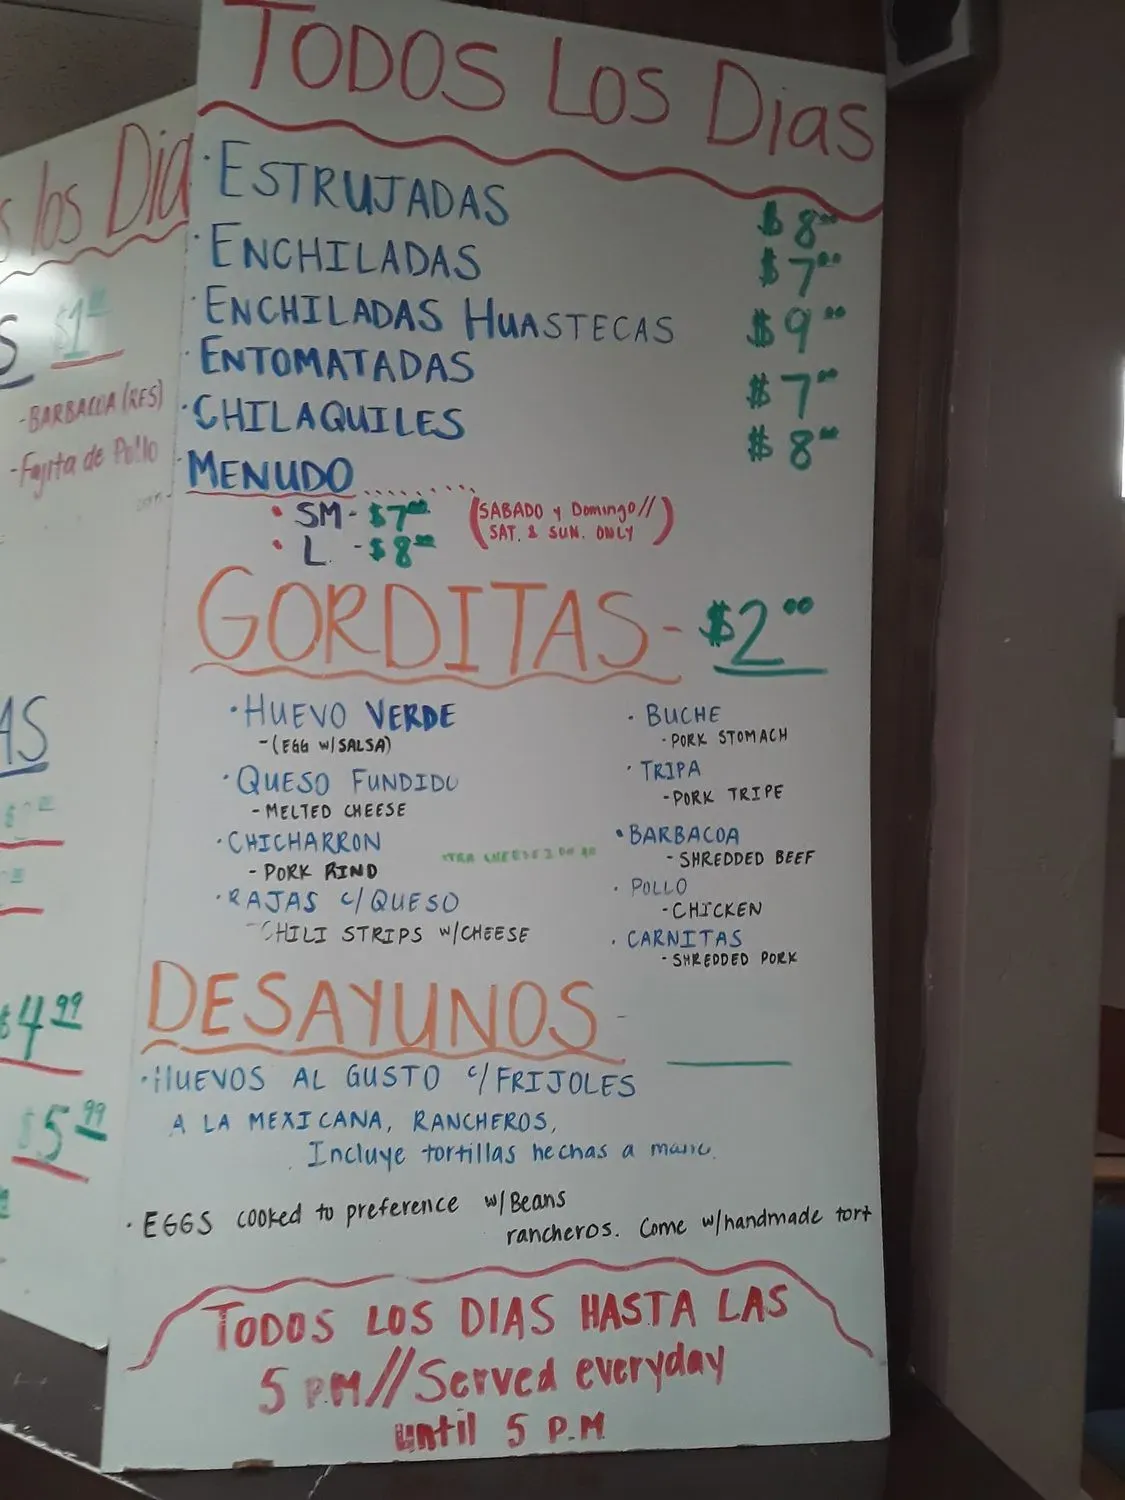 TODOS LOS Dias
· ESTRUJADAS $8.00
· ENCHILADAS $7.00
· ENCHILADAS HUASTECAS $9.00
· ENTOMATADAS $7.00
· CHILAQUILES $8.00
· MENUDO
· SM - $7.00
· L. - $8.00
(SABADO y Domingo //
SAT. & SUN. ONLY)
GORDITAS - $2.00
· HUEVO VERDE
- (EGG w/SALSA)
· QUESO FUNDIDO
- MELTED CHEESE
· CHICHARRON
- PORK RIND
· RAJAS c/QUESO
- CHILI STRIPS w/CHEESE
· BUCHE
· PORK STOMACH
· TRIPA
- PORK TRIPE
· BARBACOA
- SHREDDED BEEF
· POLLO
- CHICKEN
· CARNITAS
- SHREDDED PORK
DESAYUNOS -
· HUEVOS AL GUSTO c/FRIJOLES
A LA MEXICANA, RANCHEROS,
Incluye tortillas hechas a mano.
· EGGS cooked to preference w/Beans
rancheros. Come w/handmade tort
TODOS LOS DIAS HASTA LAS
5 P.M // Served everyday
until 5 P.M
s los Dia
S $1.00
- BARBACOA (RES)
- Fajita de Pollo
AS
$4.99
$5.99